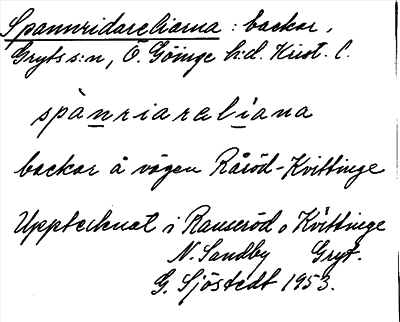 Spannridareliarna : backar,
Gryts s:n, Ö. Göinge h:d. Krist. l.
spànriarəlíana
backar å vägen Råröd-Kvittinge
Upptecknat i Ramseröd o Kvittinge
N. Sandby Gryt.
G. Sjöstedt 1953.